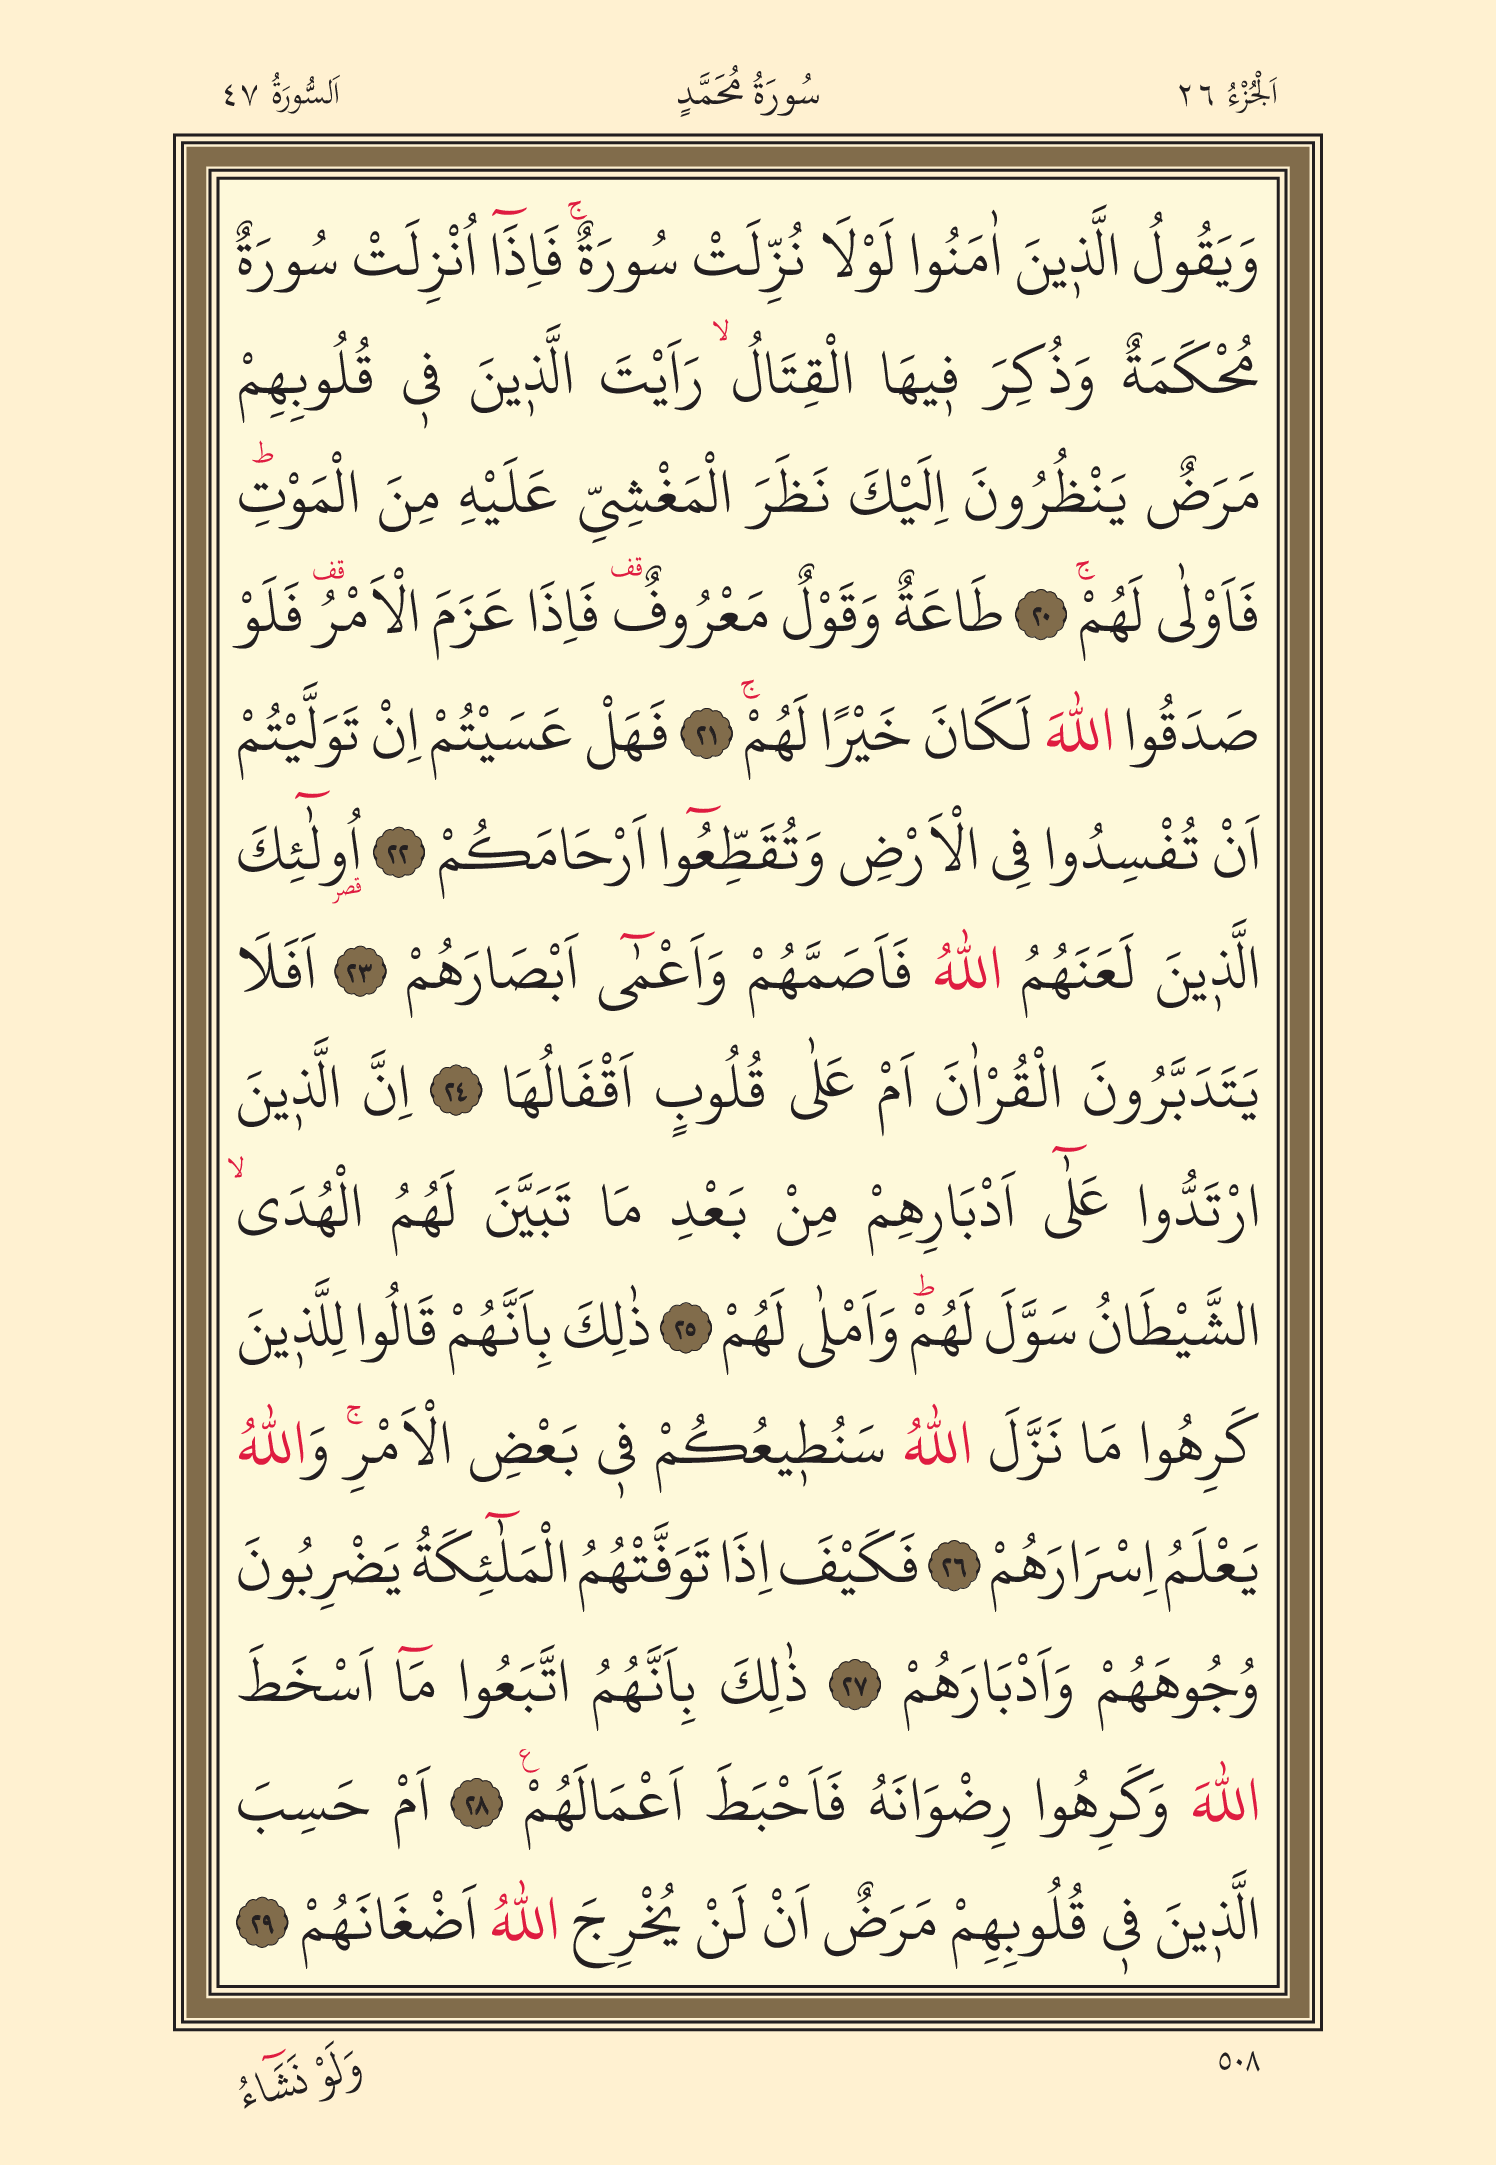 اَلْجُزْءُ ٢٦ سُورَةُ مُحَمَّدٍ اَلسُّورَةُ ٤٧
وَيَقُولُ الَّذ۪ينَ اٰمَنُوا لَوْلَا نُزِّلَتْ سُورَةٌۚ فَاِذَٓا اُنْزِلَتْ سُورَةٌ
مُحْكَمَةٌ وَذُكِرَ ف۪يهَا الْقِتَالُۙ رَاَيْتَ الَّذ۪ينَ ف۪ي قُلُوبِهِمْ
مَرَضٌ يَنْظُرُونَ اِلَيْكَ نَظَرَ الْمَغْشِيِّ عَلَيْهِ مِنَ الْمَوْتِۜ
فَاَوْلٰى لَهُمْۚ ﴿٢٠﴾ طَاعَةٌ وَقَوْلٌ مَعْرُوفٌ۠ قف فَاِذَا عَزَمَ الْاَمْرُ قف فَلَوْ
صَدَقُوا اللّٰهَ لَكَانَ خَيْرًا لَهُمْۚ ﴿٢١﴾ فَهَلْ عَسَيْتُمْ اِنْ تَوَلَّيْتُمْ
اَنْ تُفْسِدُوا فِي الْاَرْضِ وَتُقَطِّعُٓوا اَرْحَامَكُمْ ﴿٢٢﴾ اُو۬لٰٓئِكَ قصر
الَّذ۪ينَ لَعَنَهُمُ اللّٰهُ فَاَصَمَّهُمْ وَاَعْمٰٓى اَبْصَارَهُمْ ﴿٢٣﴾ اَفَلَا
يَتَدَبَّرُونَ الْقُرْاٰنَ اَمْ عَلٰى قُلُوبٍ اَقْفَالُهَا ﴿٢٤﴾ اِنَّ الَّذ۪ينَ
ارْتَدُّوا عَلٰٓى اَدْبَارِهِمْ مِنْ بَعْدِ مَا تَبَيَّنَ لَهُمُ الْهُدَىۙ
الشَّيْطَانُ سَوَّلَ لَهُمْۜ وَاَمْلٰى لَهُمْ ﴿٢٥﴾ ذٰلِكَ بِاَنَّهُمْ قَالُوا لِلَّذ۪ينَ
كَرِهُوا مَا نَزَّلَ اللّٰهُ سَنُط۪يعُكُمْ ف۪ي بَعْضِ الْاَمْرِۚ وَاللّٰهُ
يَعْلَمُ اِسْرَارَهُمْ ﴿٢٦﴾ فَكَيْفَ اِذَا تَوَفَّتْهُمُ الْمَلٰٓئِكَةُ يَضْرِبُونَ
وُجُوهَهُمْ وَاَدْبَارَهُمْ ﴿٢٧﴾ ذٰلِكَ بِاَنَّهُمُ اتَّبَعُوا مَٓا اَسْخَطَ
اللّٰهَ وَكَرِهُوا رِضْوَانَهُ فَاَحْبَطَ اَعْمَالَهُمْ ع ﴿٢٨﴾ اَمْ حَسِبَ
الَّذ۪ينَ ف۪ي قُلُوبِهِمْ مَرَضٌ اَنْ لَنْ يُخْرِجَ اللّٰهُ اَضْغَانَهُمْ ﴿٢٩﴾
٥٠٨ وَلَوْ نَشَٓاءُ